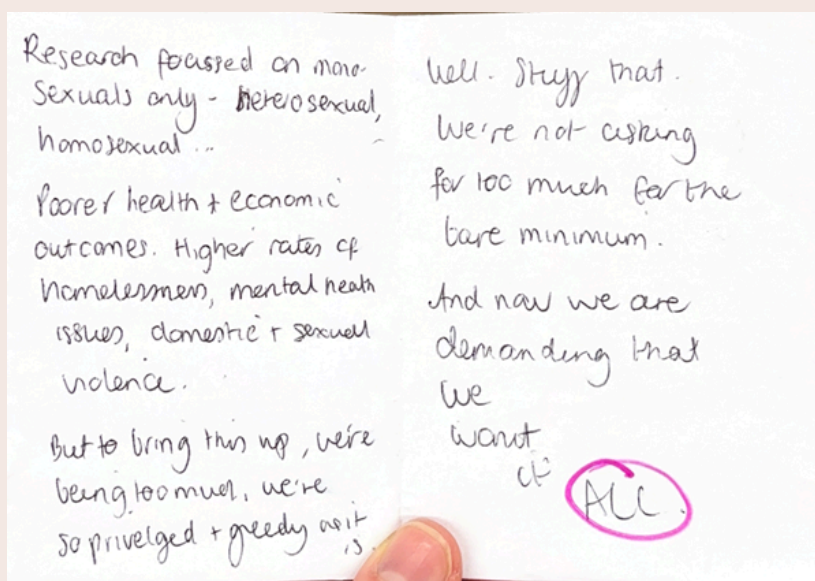 Research focussed on mono-
sexuals only - heterosexual,
homosexual ...
Poorer health + economic
outcomes. Higher rates of
homelessness, mental health
issues, domestic + sexual
violence.
But to bring this up, we're
being too much, we're
so privelged + greedy as it
is.
Well. Stuff that.
We're not asking
for too much for the
bare minimum.
And now we are
demanding that
we
want
it
ALL.